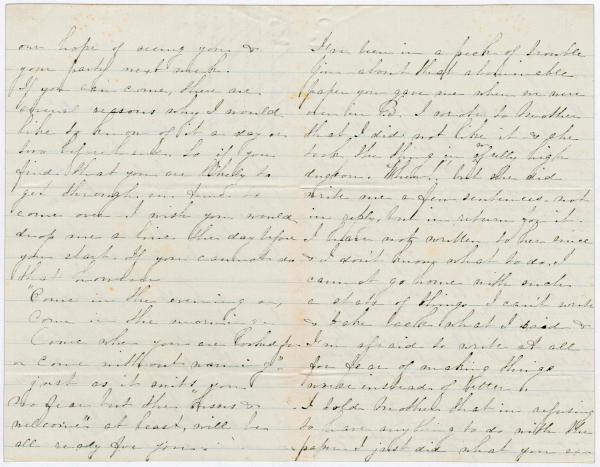 our hope of seeing you &
your party next week.
If you can come, there are
several reasons why I would
like to know of it a day or
two beforehand. So if you
find that you are likely to
get through in time to
come over I wish you would
drop me a line the day before
you start. If you cannot do
that however
"Come in the evening or,
come in the morning
Come when you are looked for
or come without warning"
just as it suits you
No fear but the "kisses &
welcome" at least, will be
all ready for you.
I've been in a peck of trouble
Jim about that abominable
paper you gave me when we were
over in I wrote to Mother
that I did not like it & she
took the thing in "fully high
dugeon. Whew!, but she did
write me a few sentences, not
in reply, but in return for it.
I have not written to her since
& I don't know what to do. I
cannot go home with such
a state of things I can't write
& take back what I said &
I'm afraid to write at all
for fear of making things
worse instead of better.
I told Mother that in refusing
to have anything to do with the
paper I just did what you